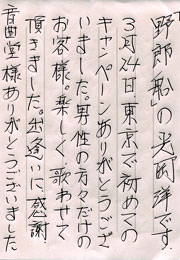 「野郎船」の光岡洋です。
3月24日東京で初めての
キャンペーンありがとうござ
いました。男性の方々だけの
お客様。楽しく歌わせて
頂きました。出逢いに感謝
音曲堂様ありがとうございました